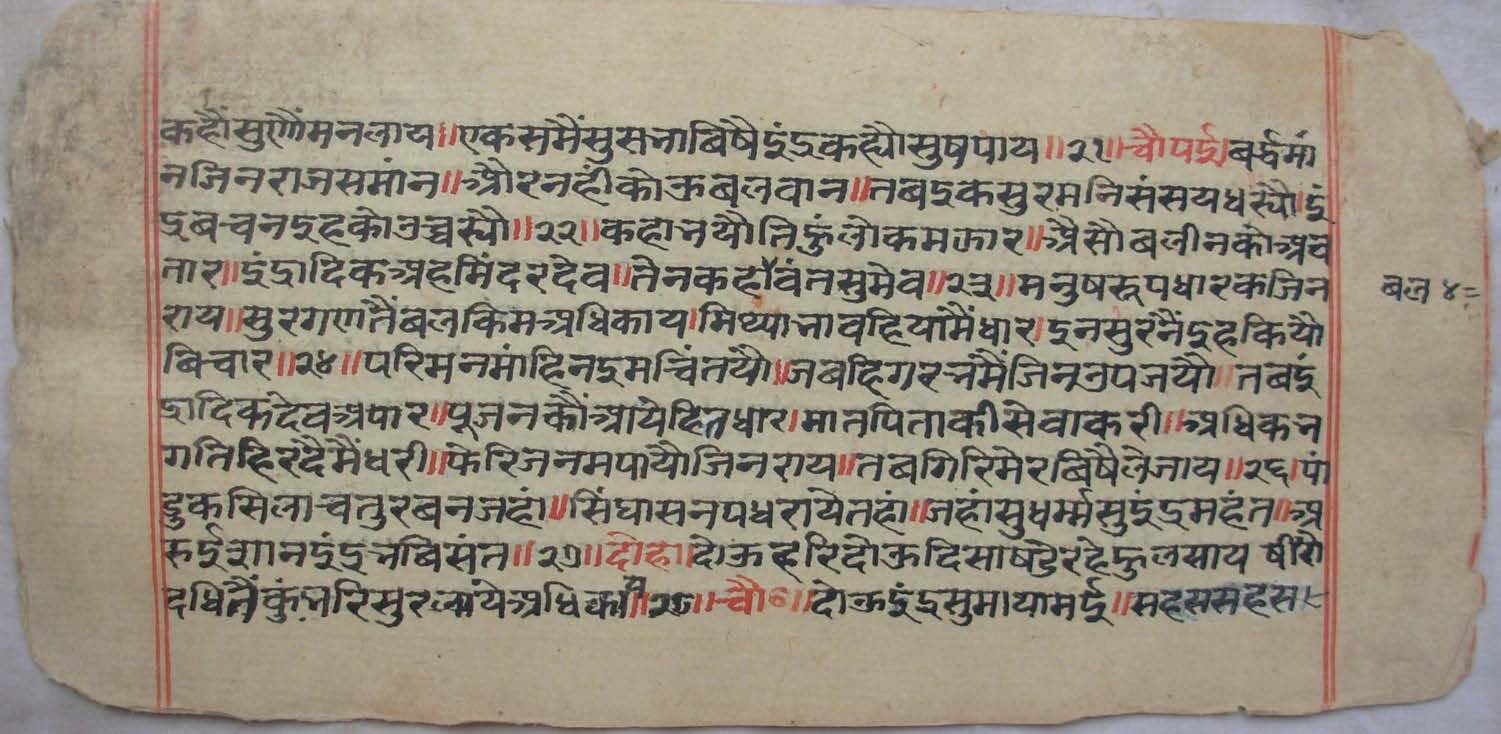 कहौंसुणौंमनलाय॥एकसमैंसुसभाबिषैइंद्रकह्यौसुषपाय॥२१॥चौपई॥बर्द्धमां
नजिनराजसमांन॥औरनहींकोऊबलवान॥तबइकसुरमनिसंसयधर्यौ।इं
द्रबचनइहकोउच्चर्यौ॥२२॥कहाभयौतिहुंलोकमझार॥ऐसौबलीनकोअव
तार॥इंद्रादिकअहमिंदरदेव॥तेनकहांवंतसुमेव॥२३॥मनुषरूपधारकजिन
राय॥सुरगणतैंबलकिमअधिकाय।मिथ्याभावहियामैंधार।इनसुरनैंइहकियौ
बिचार॥२४॥परिमनमांहिनइमचिंतयौ॥जबहिगरभमैंजिनउपजयौ॥तबइं
द्रादिकदेवअपार॥पूजनकौंआयेहितधार।मातपिताकीसेवाकरी॥अधिकभ
गतिहिरदैमैंधरी॥फेरिजनमपायौजिनराय॥तबगिरिमेरबिषैलैजाय॥२६।पां
डुकसिलाचतुरबनजहां॥सिंघासनपधरायेतहां॥जहांसुधर्म्मसुइंद्रमहंत॥अ
रुईशानइंद्रभबिसंत॥२७॥दोहा।दोऊहरिदोऊदिसाषडेरहेहुलसाय षीरो
दधितैंकुंभरिसुरल्यायेअधिकाय॥२८॥चौ०॥दोऊइंद्रसुमायामई॥सहससहस
बल ४